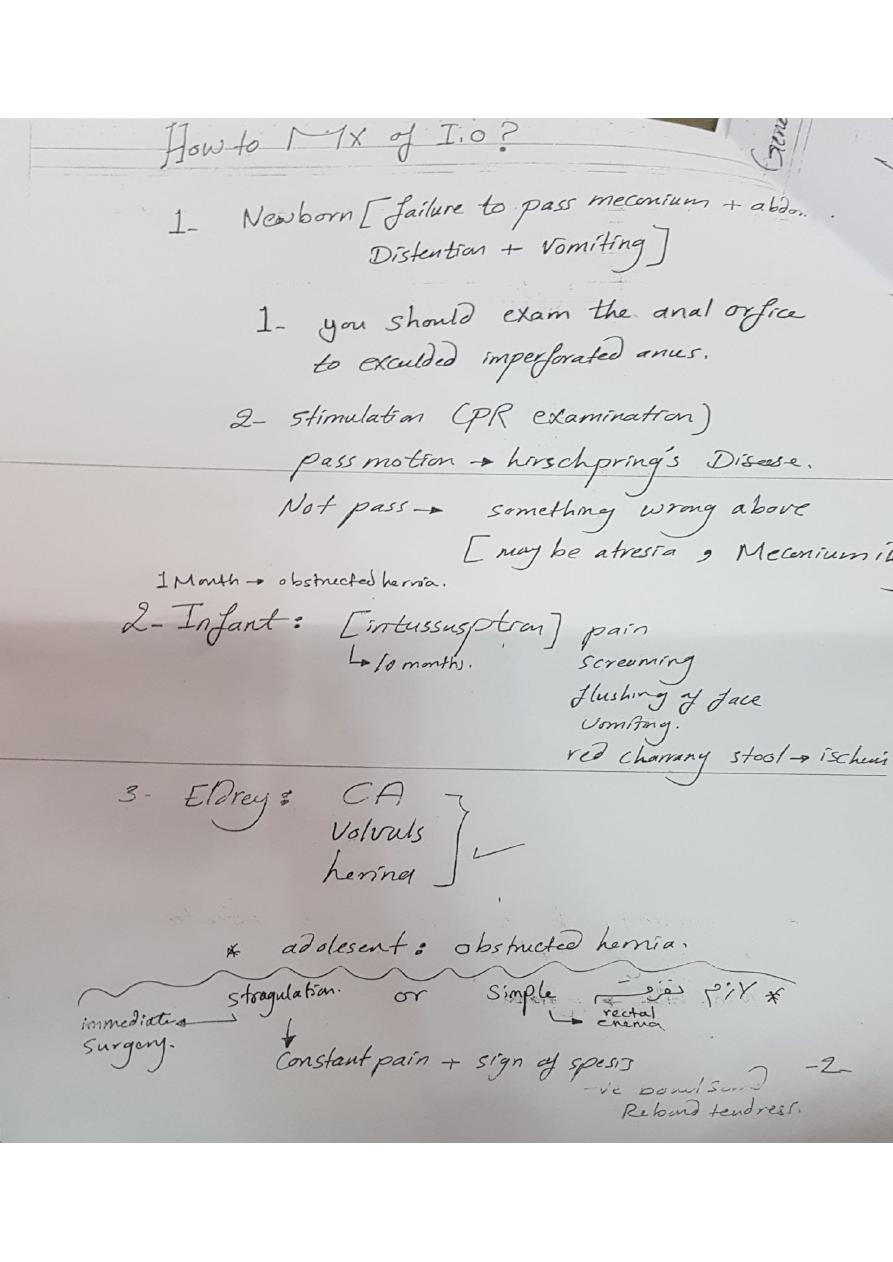 How to Mx of I.O?
1- Newborn [failure to pass meconium + abdo.
Distention + Vomiting]
1- you should exam the anal orfice
to exculded imperforated anus.
2- stimulation (PR examination)
pass motion → hirschpring's Disease.
Not pass → something wrong above
[may be atresia, Meconium i
1 Month → obstructed hernia.
2- Infant: [intussusption] pain
↳ 10 months. screaming
flushing of face
vomiting.
red stool → ischemis
3- Eldrey: CA
Volvuls
herina
* adolesent: obstructed hernia.
stragulation. or Simple لازم نفرق *
immediate rectal
surgery. enema
Constant pain + sign of spesis -2-
-ve bowel sound
Rebound tendress.